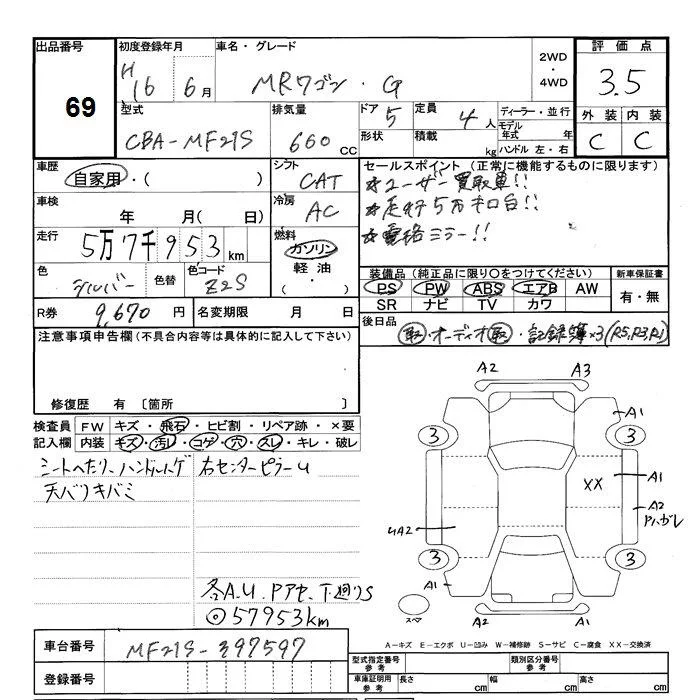 出品番号 初度登録年月 車名・グレード 2WD・4WD 評価点
69 H16 6月 MRワゴン・G 3.5
型式 排気量 ドア 5 定員 4人 ディーラー・並行 外装 内装
CBA-MF21S 660CC 形状 積載 kg モデル年式 年 C C
ハンドル 左・右
車歴 シフト セールスポイント (正常に機能するものに限ります)
自家用・( ) CAT ☆ユーザー買取車!!
車検 年 月( 日) 冷房 AC ☆走行5万キロ台!!
走行 5万7千953km 燃料 ガソリン 軽油・( ) ☆電格ミラー!!
色 シルバー 色替 色コード Z2S
装備品 (純正品に限り○をつけてください) 新車保証書
PS PW ABS エアB AW 有・無
SR ナビ TV カワ
R券 9,670円 名変期限 月 日
後日品 取・オーディオ取・記録簿×3(R5,R3,R1)
注意事項申告欄(不具合内容等は具体的に記入して下さい)
修復歴 有 〔箇所 〕
検査員記入欄 FW キズ・飛石・ヒビ割・リペア跡・×要
内装 キズ・汚レ・コゲ・穴・スレ・キレ・破レ
シートへたり、ハンドルハゲ 右センターピラーU
天バリキバミ
各A.U.Pアセ、下廻りS
◎57953km
A2 A3
A1
3 3
XX A1
A2 Pハガレ
UA2
3 3
A1
スペア A2 A2
A-キズ E-エクボ U-凹み W-補修跡 S-サビ C-腐食 XX-交換済
車台番号 MF21S-397597
登録番号
型式指定番号 参考 類別区分番号 参考
車庫証明用 参考 長さ cm 幅 cm 高さ cm